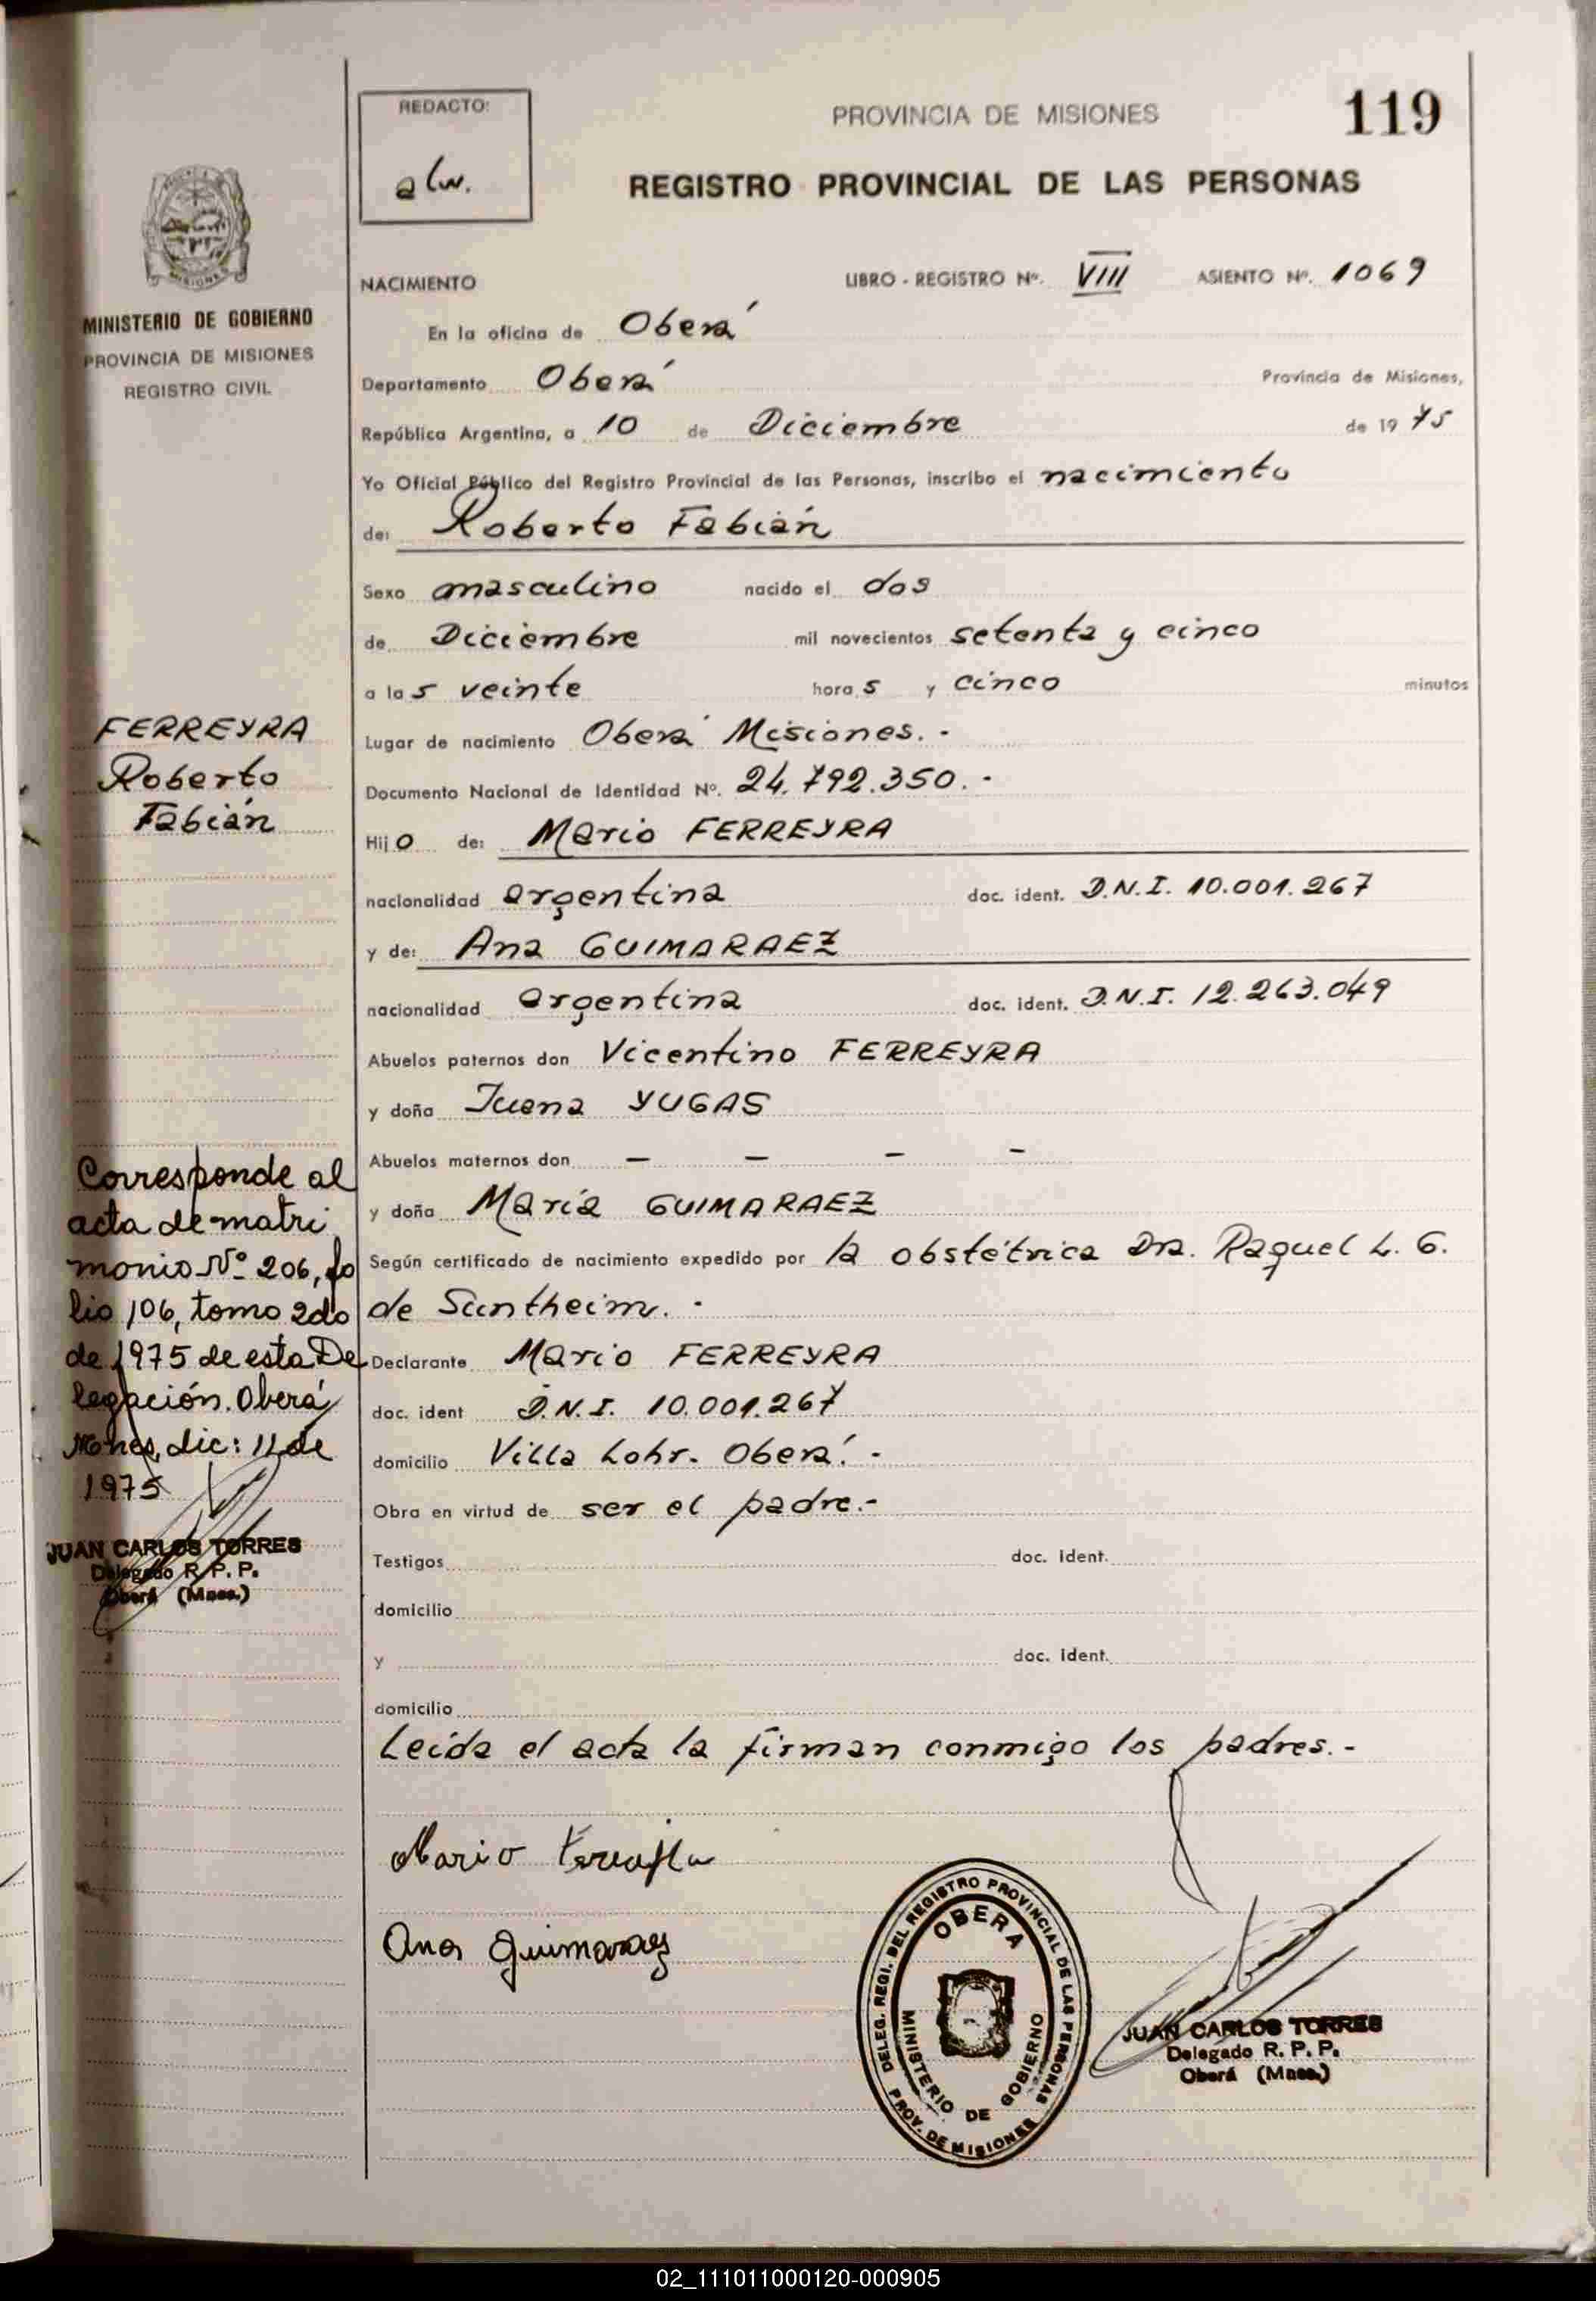 REDACTO:
alw.
PROVINCIA DE MISIONES
119
REGISTRO PROVINCIAL DE LAS PERSONAS
MISIONES
MINISTERIO DE GOBIERNO
PROVINCIA DE MISIONES
REGISTRO CIVIL
NACIMIENTO LIBRO - REGISTRO Nº. VIII ASIENTO Nº. 1069
En la oficina de Oberá
Departamento Oberá Provincia de Misiones,
República Argentina, a 10 de Diciembre de 19 75
Yo Oficial Público del Registro Provincial de las Personas, inscribo el nacimiento
de: Roberto Fabián
Sexo masculino nacido el dos
de Diciembre mil novecientos setenta y cinco
a las veinte horas y cinco minutos
Lugar de nacimiento Oberá Misiones.-
Documento Nacional de Identidad Nº. 24.792.350.-
Hijo de: Mario FERREYRA
nacionalidad argentina doc. ident. D.N.I. 10.001.267
y de: Ana GUIMARAEZ
nacionalidad argentina doc. ident. D.N.I. 12.263.049
Abuelos paternos don Vicentino FERREYRA
y doña Juana YUGAS
Abuelos maternos don - - - -
y doña María GUIMARAEZ
Según certificado de nacimiento expedido por la obstétrica Dra. Raquel L. G.
de Suntheim.-
Declarante Mario FERREYRA
doc. ident D.N.I. 10.001.267
domicilio Villa Lohr. Oberá.-
Obra en virtud de ser el padre.-
Testigos doc. ident.
domicilio
y doc. ident.
domicilio
Leida el acta la firman conmigo los padres.-
Mario Ferreyra
Ana Guimaraez
FERREYRA
Roberto
Fabián
Corresponde al
acta de matri
monio Nº 206, fo
lio 106, tomo 2do
de 1975 de esta De
legación. Oberá
Mnes, dic: 11 de
1975
JUAN CARLOS TORRES
Delegado R. P. P.
Oberá (Mnes.)
DELEG. REGI. DEL REGISTRO PROVINCIAL DE LAS PERSONAS
OBERA
MINISTERIO DE GOBIERNO
PROV. DE MISIONES
JUAN CARLOS TORRES
Delegado R. P. P.
Oberá (Mnes.)
02_111011000120-000905